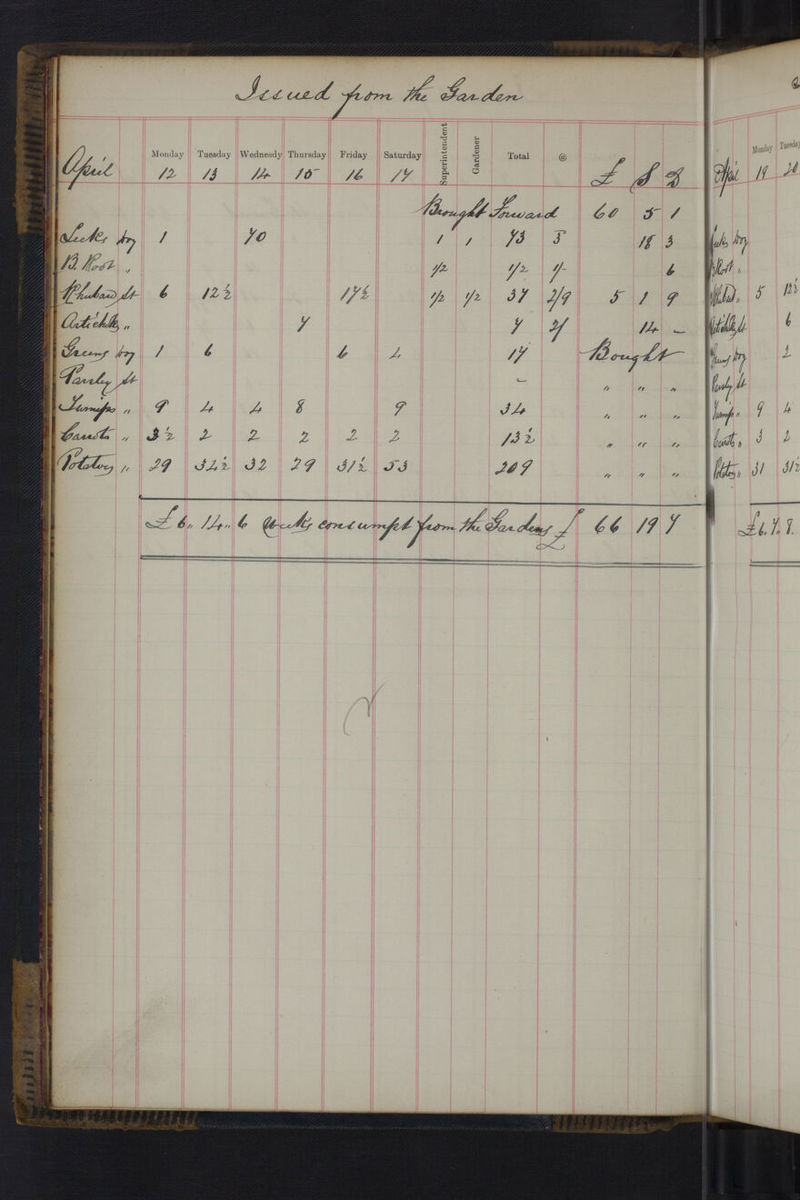 Issued from the Garden
April Monday 12 Tuesday 13 Wednesdy 14 Thursday 15 Friday 16 Saturday 17 Superintendent Gardener Total @ £ S D
Brought Forward 60 5 1
Leeks Doz 1 70 1 1 73 3 18 3
B. Root " 1/2 1/2 1/- 6
Rhubarb St 6 12½ 17½ 1/2 1/2 37 2/9 5 1 9
Artichks " 7 7 2/ 14 -
Greens Doz 1 6 6 4 17 Bought
Parsley St - " " "
Turnips " 9 4 4 8 9 34 " " "
Carrots " 3½ 2 2 2 2 2 13½ " " "
Potatoes " 29 34½ 32 29 31½ 53 209 " " "
£6. 14. 6 Weeks consumpt from the Gardens £ 66 19 7
Monday Tuesday
April 19 20
Leeks Doz
B Root "
Rhubd " 5 12½
Artichks St 6
Greens Doz 2
Parsly St
Turnips " 9 4
Carrots " 3 2
Potatoes " 31 31½
£6. 7. 8.